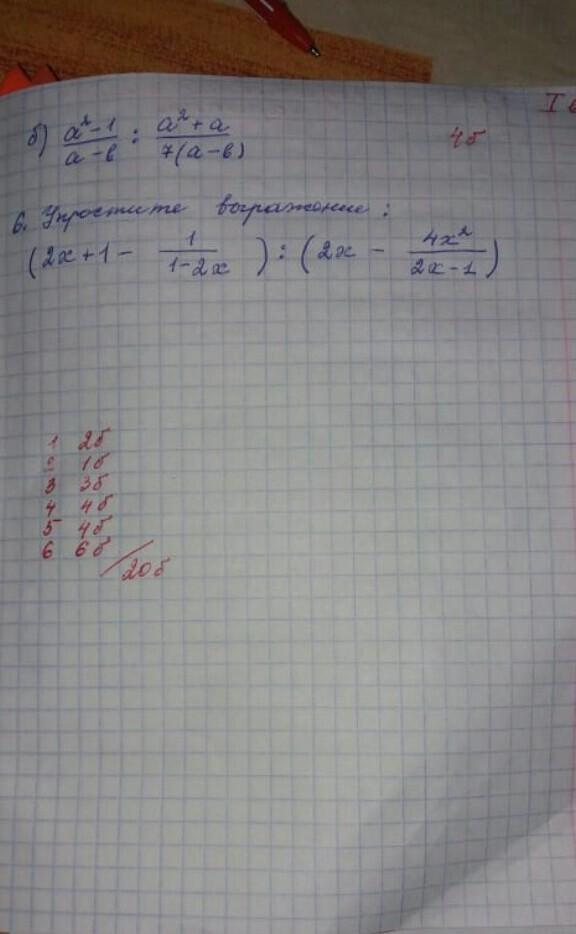 I в
б) (a²-1)/(a-в) : (a²+a)/(7(a-в)) 4б
6. Упростите выражение :
(2x+1 - 1/(1-2x)) : (2x - 4x²/(2x-1))
1 2б
2 1б
3 3б
4 4б
5 4б
6 6б
/20б